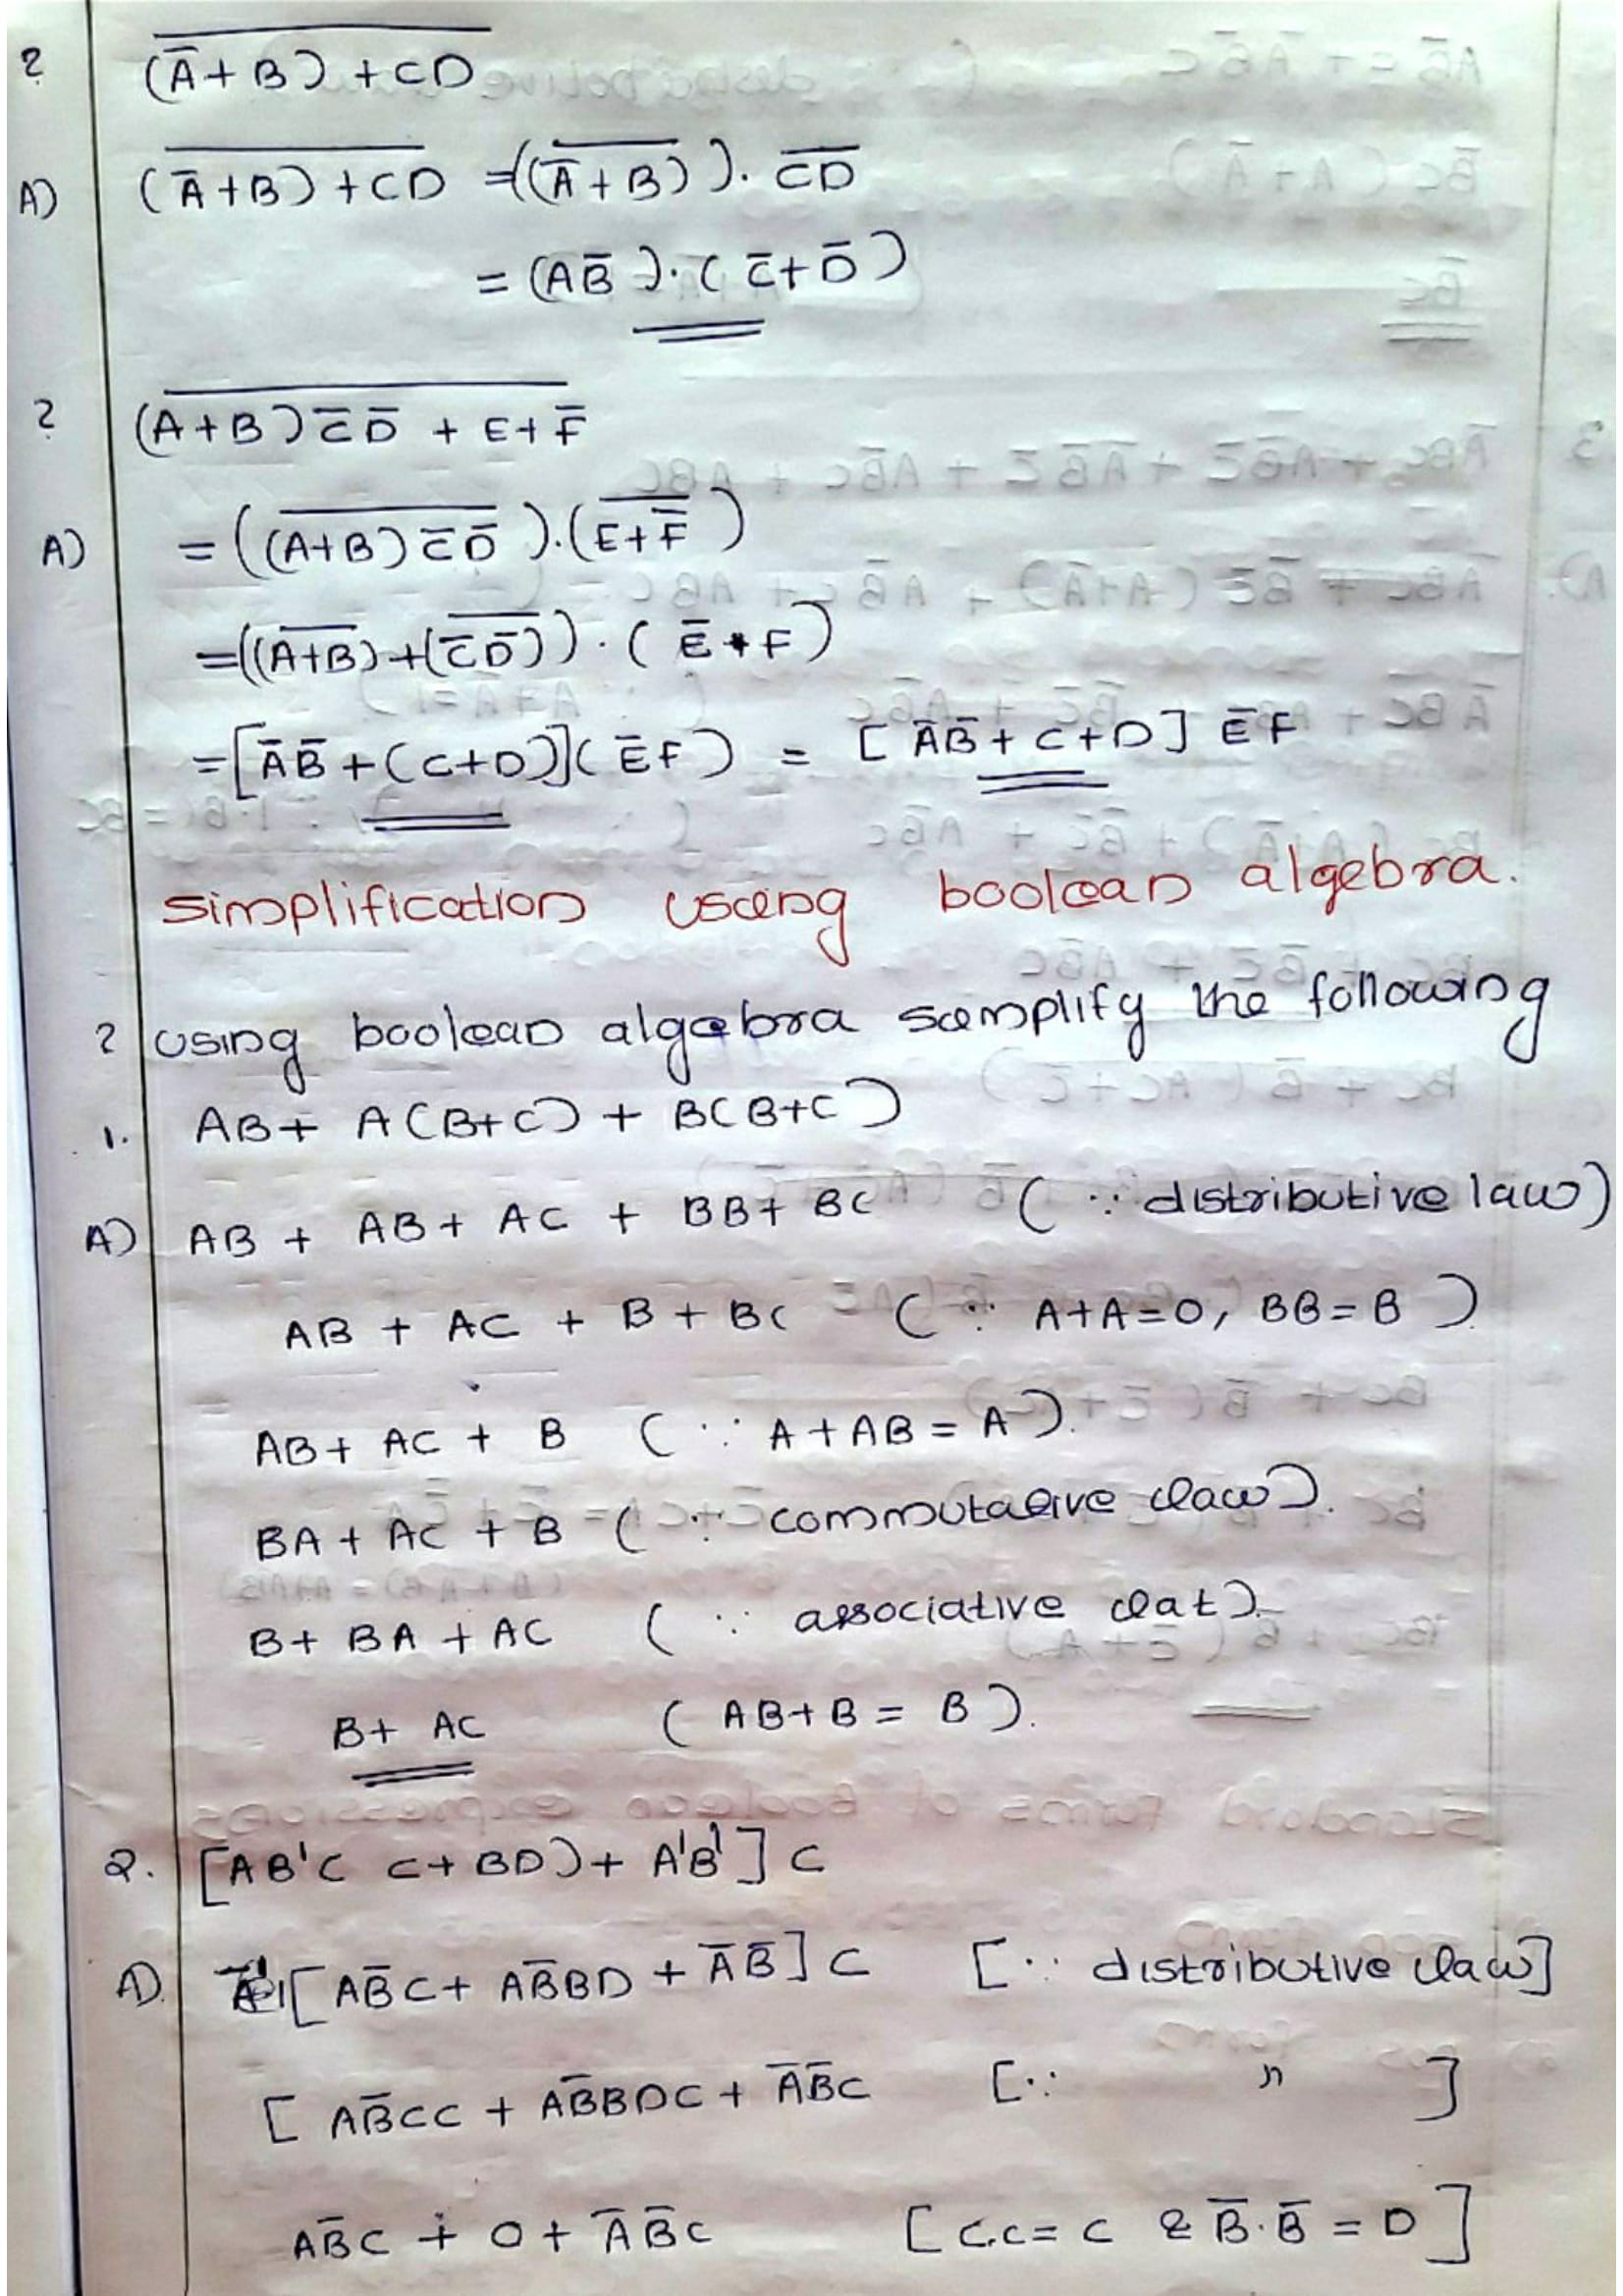 ? \overline{(Ā+B)+CD}
A) \overline{(Ā+B)+CD} = (\overline{(Ā+B)}).\overline{CD}
= (AB̄).(C̄+D̄)
? \overline{(A+B)C̄D̄ + E+F̄}
A) = (\overline{(A+B)C̄D̄}).(\overline{E+F̄})
= ((\overline{A+B})+(\overline{C̄D̄})).(Ē*F)
= [ĀB̄+(C+D)](ĒF) = [ĀB̄+C+D]ĒF
simplification using boolean algebra.
? using boolean algebra simplify the following
1. AB+ A(B+C) + B(B+C)
A) AB + AB+ AC + BB+ BC (∵ distributive law)
AB + AC + B + BC (∵ A+A=0, BB=B)
AB+ AC + B (∵ A+AB = A).
BA + AC + B (∵ commutative law).
B+ BA + AC (∵ associative lat).
B+ AC (AB+B = B).
2. [AB'C C+BD)+ A'B'] C
A) [AB̄C+ AB̄BD + ĀB̄] C [∵ distributive law]
[AB̄CC + AB̄BDC + ĀB̄C [∵ " ]
AB̄C + 0 + ĀB̄C [C.C = C & B̄.B̄ = 0]